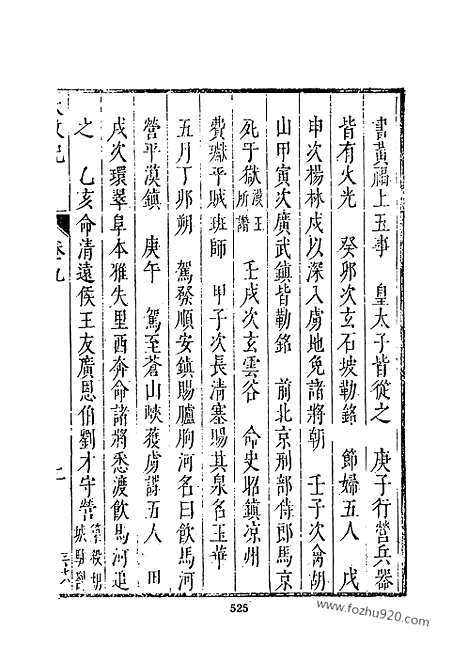 書黃福上五事　皇太子皆從之　庚子行營兵器
皆有火光　癸卯次玄石坡勒銘　節婦五人　戊
申次楊林戍以深入虜地免諸將朝　壬子次禽胡
山甲寅次廣武鎮皆勒銘　前北京刑部侍郎馬京
死于獄漢王所譖　壬戌次玄雲谷　命史昭鎮涼州
費瓛平城班師　甲子次長清塞賜其泉名玉華
五月丁卯朔　駕發順安鎮賜臚朐河名曰飲馬河
營平漠鎮　庚午　駕至蒼山峽獲虜諜五人　田
戌次環翠阜本雅失里西奔命諸將悉渡飲馬河追
之　乙亥命清遠侯王友廣恩伯劉才守營
卷九
525
www.fozhu920.com